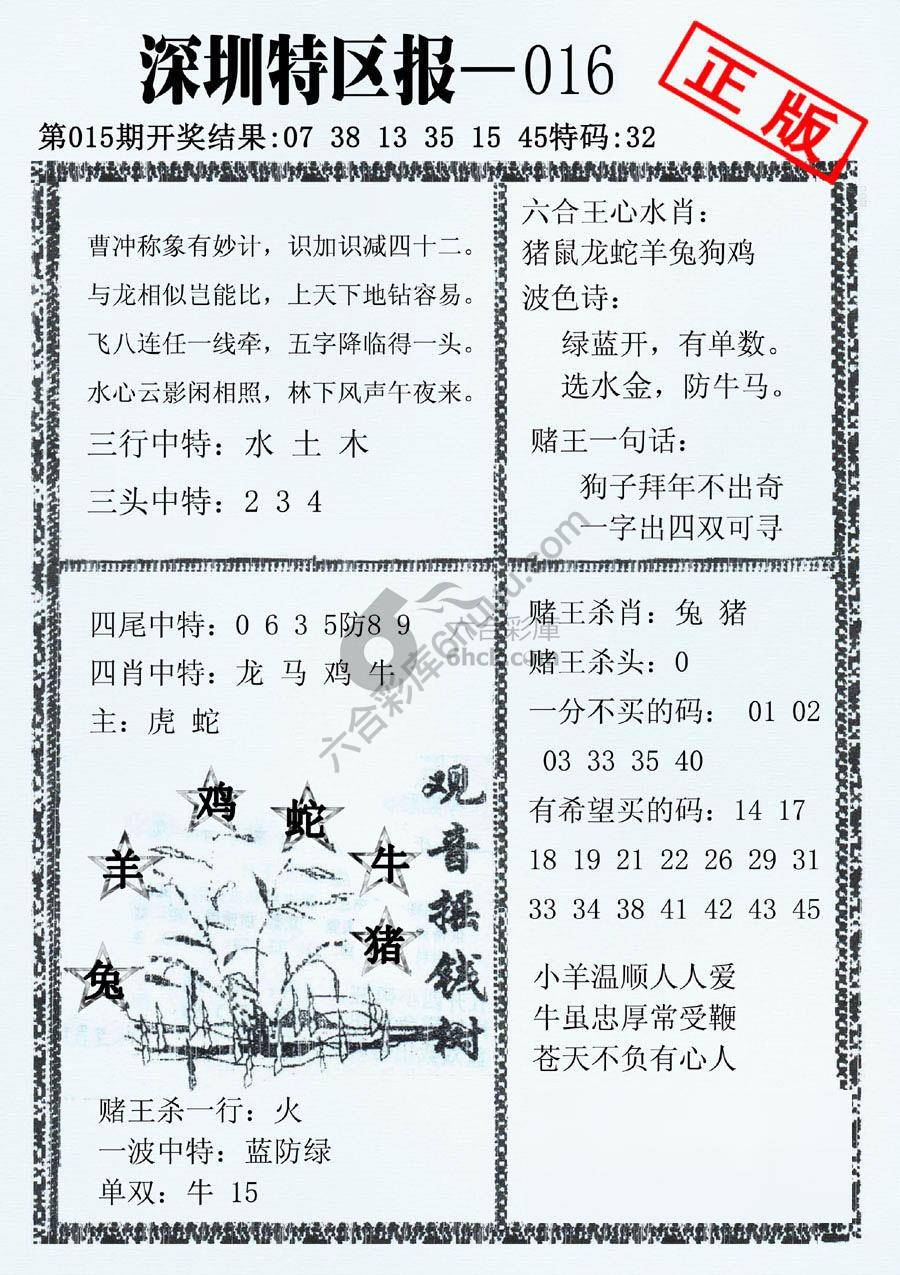 深圳特区报—016
正版
第015期开奖结果:07 38 13 35 15 45特码:32
曹冲称象有妙计，识加识减四十二。
与龙相似岂能比，上天下地钻容易。
飞八连任一线牵，五字降临得一头。
水心云影闲相照，林下风声午夜来。
三行中特：水 土 木
三头中特：2 3 4
六合王心水肖：
猪鼠龙蛇羊兔狗鸡
波色诗：
绿蓝开，有单数。
选水金，防牛马。
赌王一句话：
狗子拜年不出奇
一字出四双可寻
四尾中特：0 6 3 5防8 9
四肖中特：龙 马 鸡 牛
主：虎 蛇
鸡
蛇
羊
牛
猪
兔
观音摇钱树
赌王杀一行：火
一波中特：蓝防绿
单双：牛 15
赌王杀肖：兔 猪
赌王杀头：0
一分不买的码： 01 02
03 33 35 40
有希望买的码：14 17
18 19 21 22 26 29 31
33 34 38 41 42 43 45
小羊温顺人人爱
牛虽忠厚常受鞭
苍天不负有心人
六合彩库